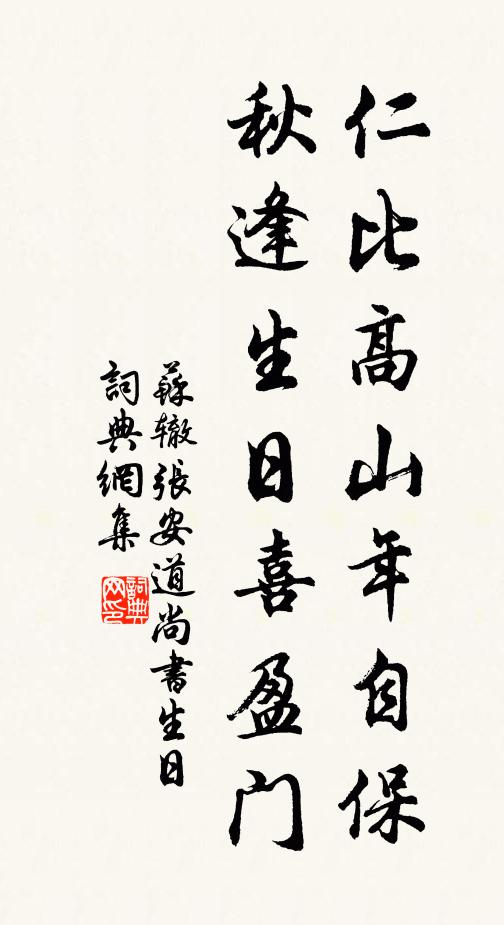 仁比高山年自保
秋逢生日喜盈门
蘇辙張安道尚書生日
詞典網集
詞典网印